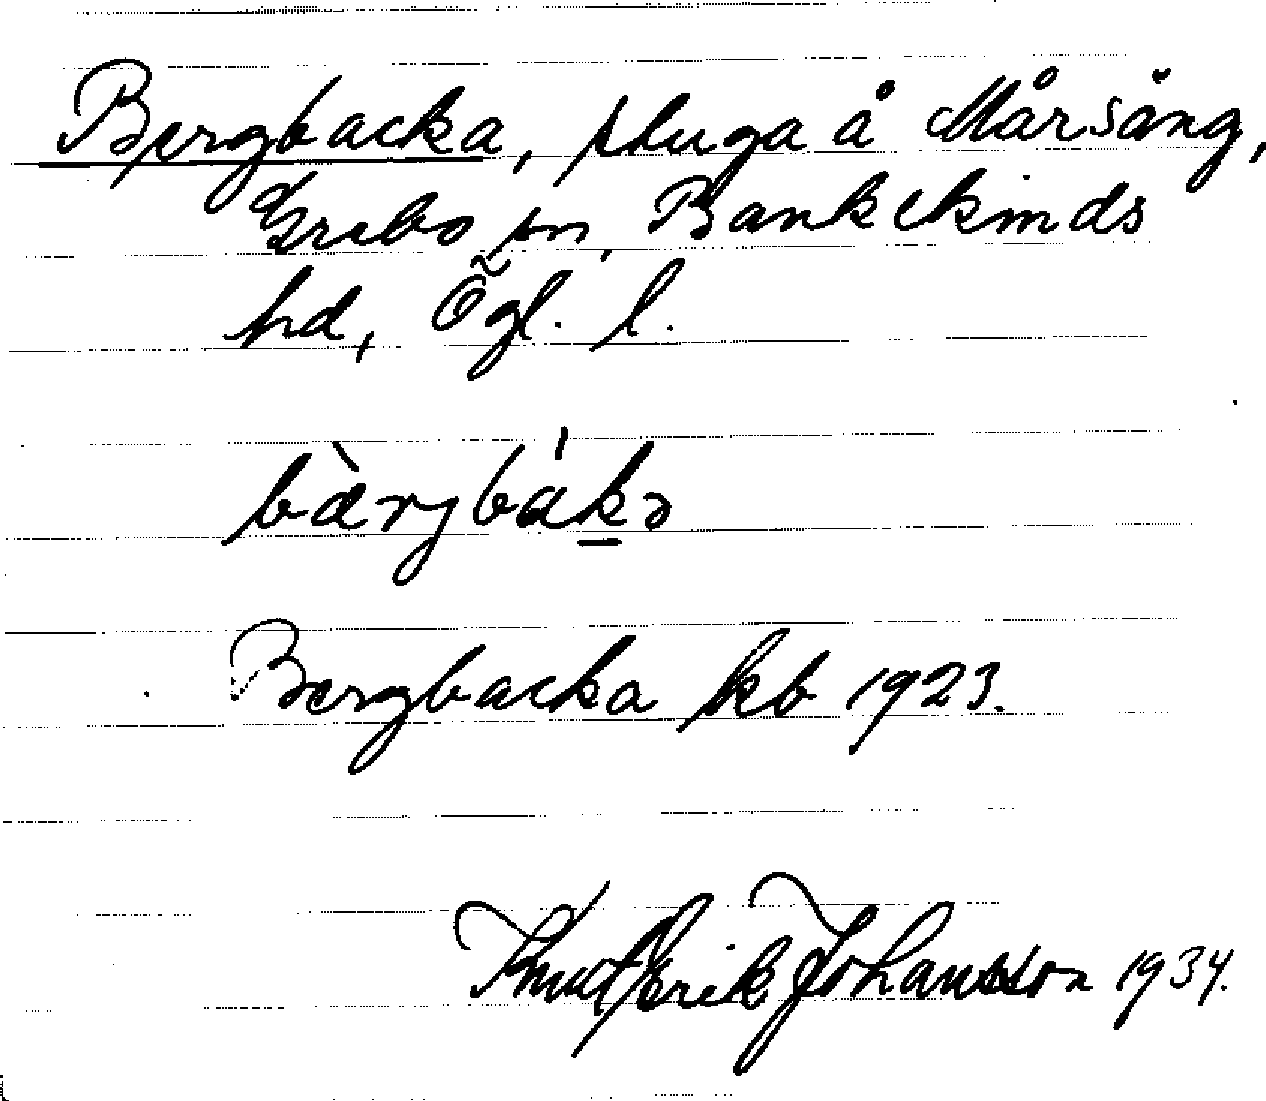 Bergbacka, stuga å Mårsäng,
Grebo sn, Bankekinds
hd, Ögl. l.
bæ̀rjbákə
Bergbacka kb 1923.
Knut Erik Johansson 1934.